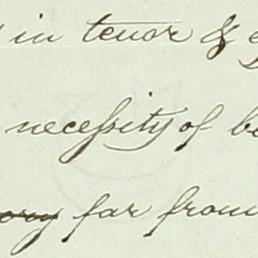 in tenor &
necessity of
far from